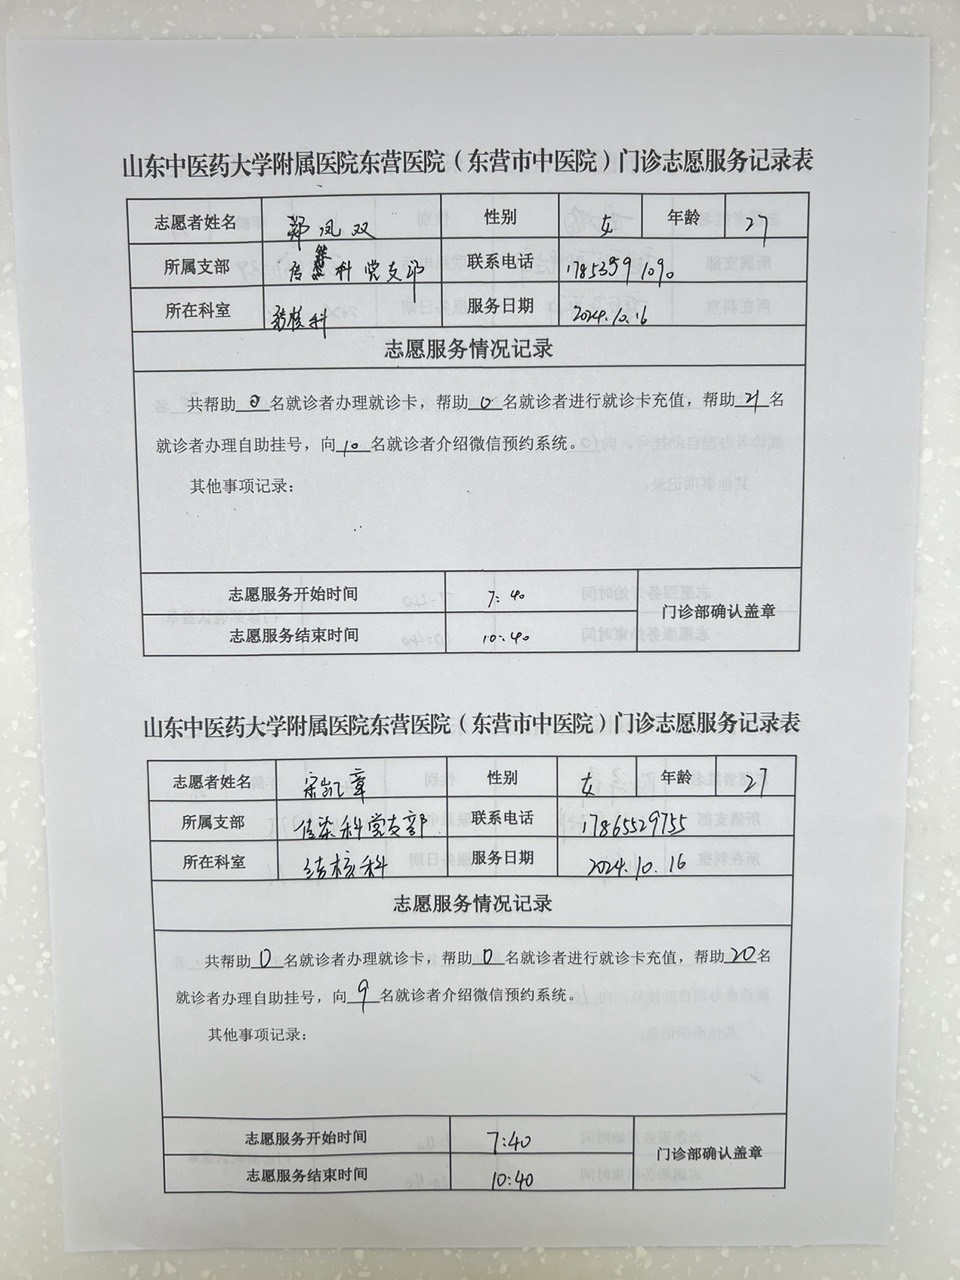 山东中医药大学附属医院东营医院（东营市中医院）门诊志愿服务记录表
志愿者姓名 郑凤双 性别 女 年龄 27
所属支部 传染科党支部 联系电话 17853591090
所在科室 结核科 服务日期 2024.10.16
志愿服务情况记录
共帮助 0 名就诊者办理就诊卡，帮助 0 名就诊者进行就诊卡充值，帮助 21 名
就诊者办理自助挂号，向 10 名就诊者介绍微信预约系统。
其他事项记录：
志愿服务开始时间 7:40
门诊部确认盖章
志愿服务结束时间 10:40
山东中医药大学附属医院东营医院（东营市中医院）门诊志愿服务记录表
志愿者姓名 宋凯章 性别 女 年龄 27
所属支部 传染科党支部 联系电话 17865529755
所在科室 结核科 服务日期 2024.10.16
志愿服务情况记录
共帮助 0 名就诊者办理就诊卡，帮助 0 名就诊者进行就诊卡充值，帮助 20 名
就诊者办理自助挂号，向 9 名就诊者介绍微信预约系统。
其他事项记录：
志愿服务开始时间 7:40
门诊部确认盖章
志愿服务结束时间 10:40